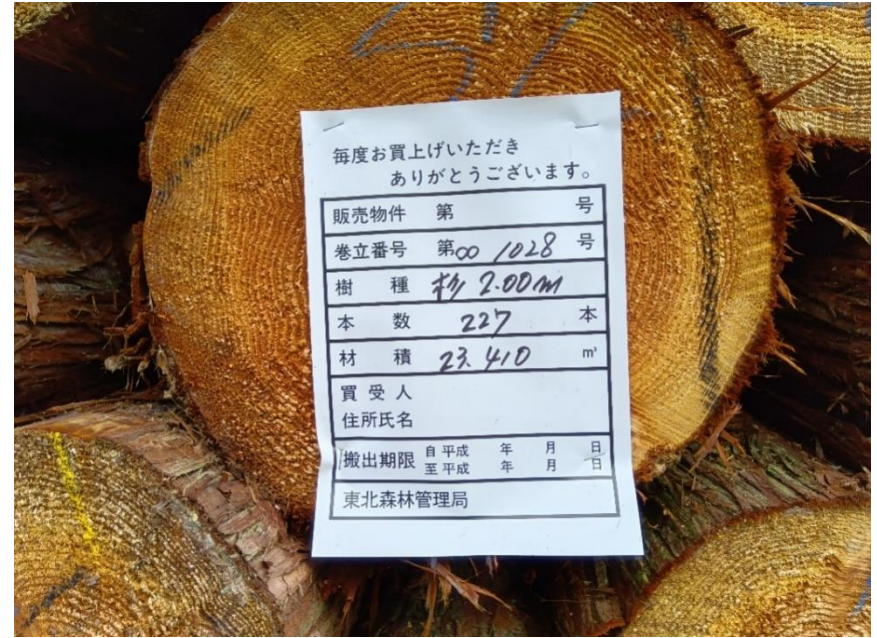 毎度お買上げいただき
ありがとうございます。
販売物件 第 号
巻立番号 第∞ 1028 号
樹 種 杉 2.00m
本 数 227 本
材 積 23.410 m³
買受人
住所氏名
搬出期限 自 平成 年 月 日
至 平成 年 月 日
東北森林管理局